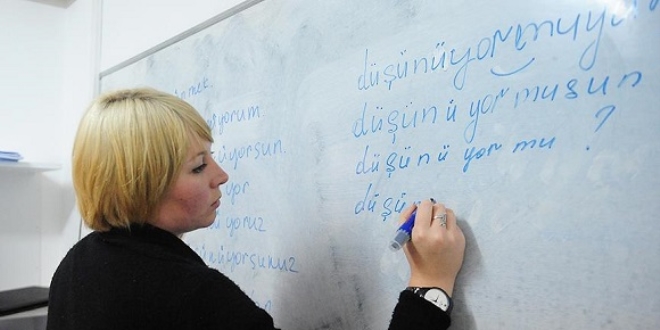 nmek.
yorum.
üyorsun.
yor.
üyoruz
nüyorsunuz
düşünüyormuyu
düşünüyormusun
düşünüyor mu ?
düşü